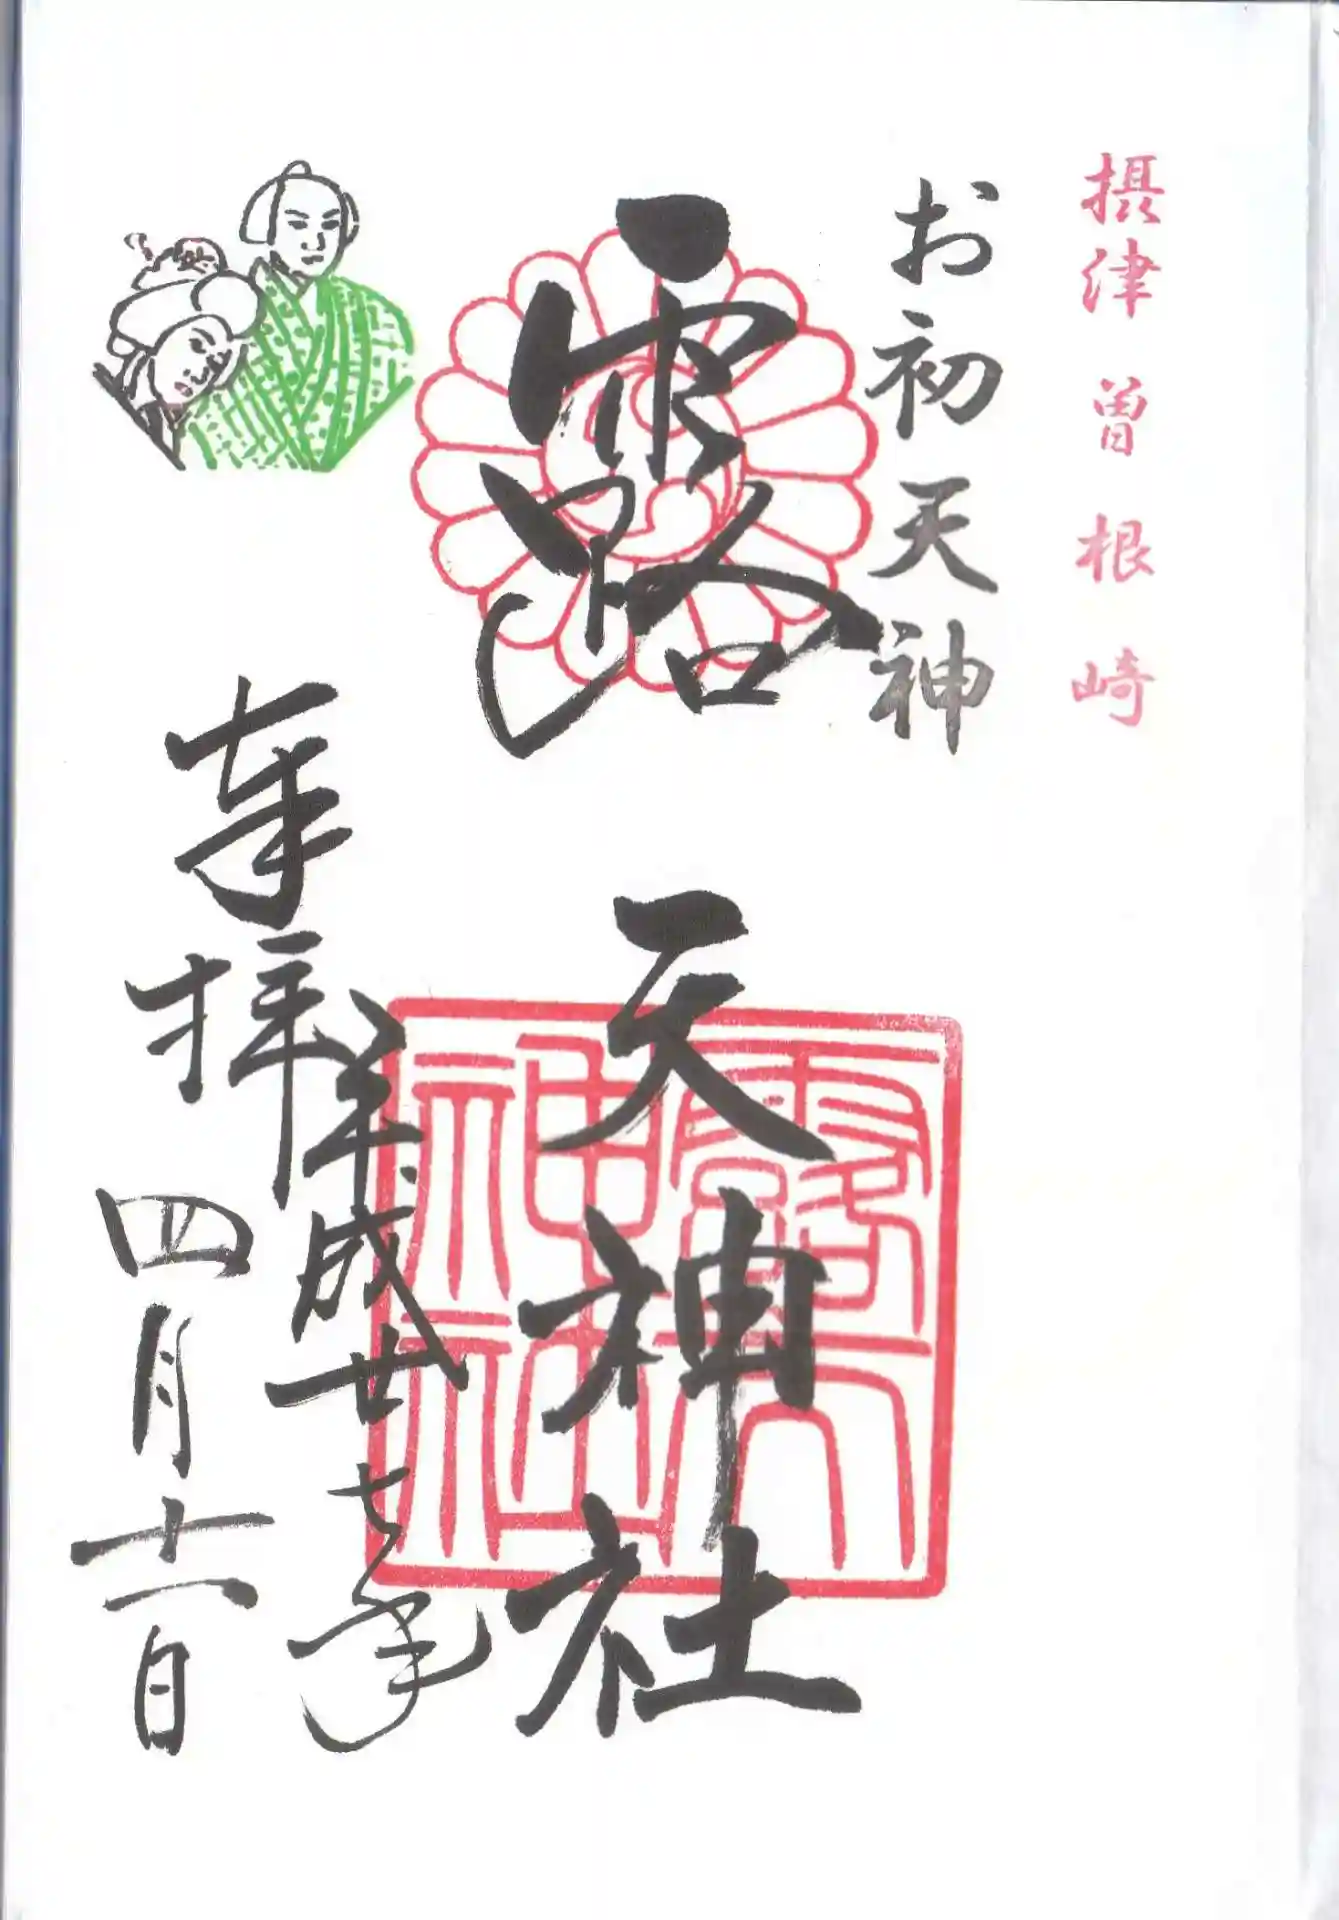 摂津 曽根崎
お初天神
露 天神社
露天神社
奉拝
平成廿七年
四月十一日